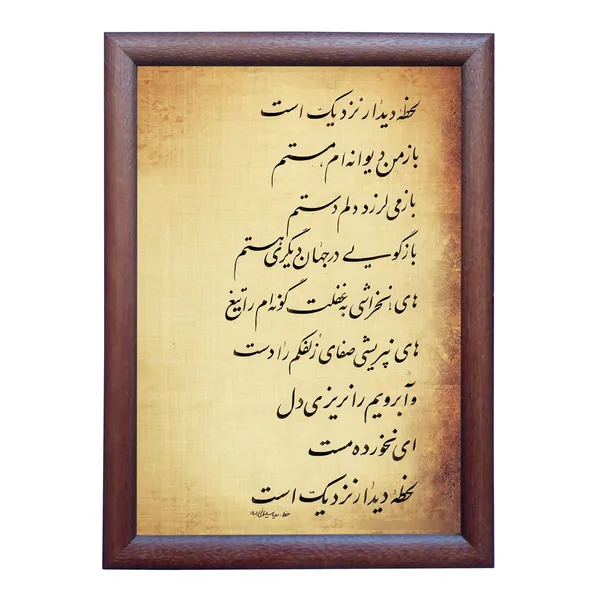 لحظهٔ دیدار نزدیک است
باز من دیوانه‌ام، مستم
باز می‌لرزد دلم، دستم
باز گویی در جهان دیگری هستم
های، نخراشی به غفلت گونه‌ام را تیغ
های، نپریشی صفای زلفکم را دست
و آبرویم را نریزی دل
ای نخورده مست
لحظهٔ دیدار نزدیک است
خط: